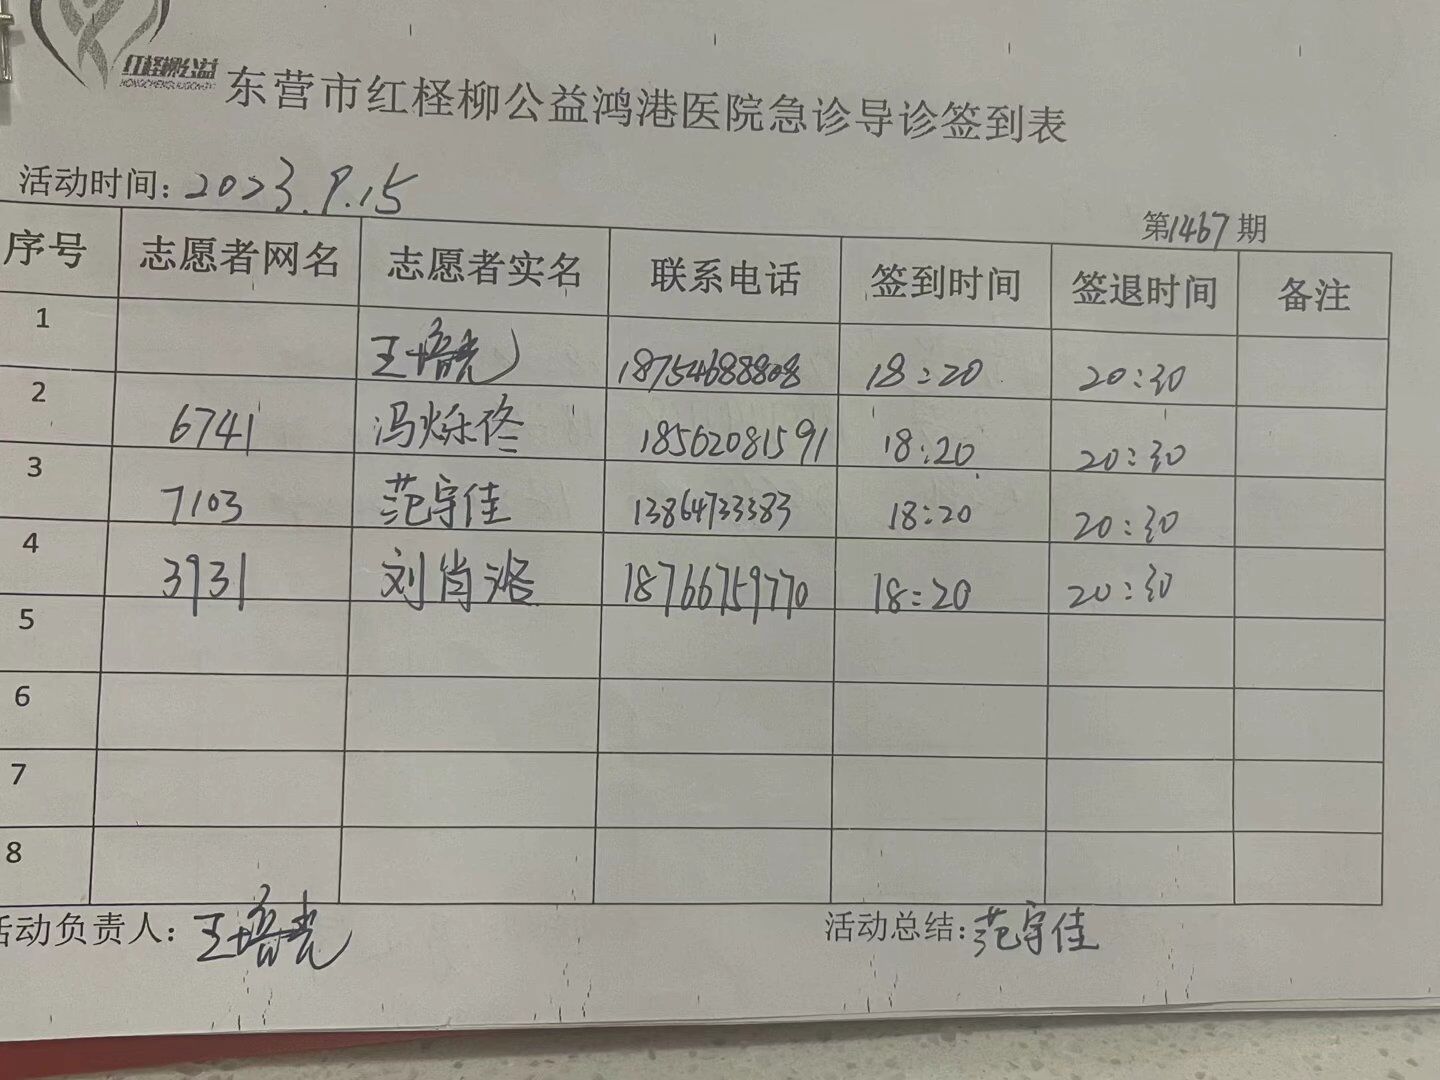 红柽柳公益
东营市红柽柳公益鸿港医院急诊导诊签到表
活动时间: 2023.9.15
第1467期
序号 志愿者网名 志愿者实名 联系电话 签到时间 签退时间 备注
1 王培亮 18754688808 18:20 20:30
2 6741 冯烁佟 18562081591 18:20 20:30
3 7103 范宇佳 13864733383 18:20 20:30
4 3931 刘肖洛 18766759770 18:20 20:30
5
6
7
8
活动负责人: 王培亮 活动总结: 范宇佳